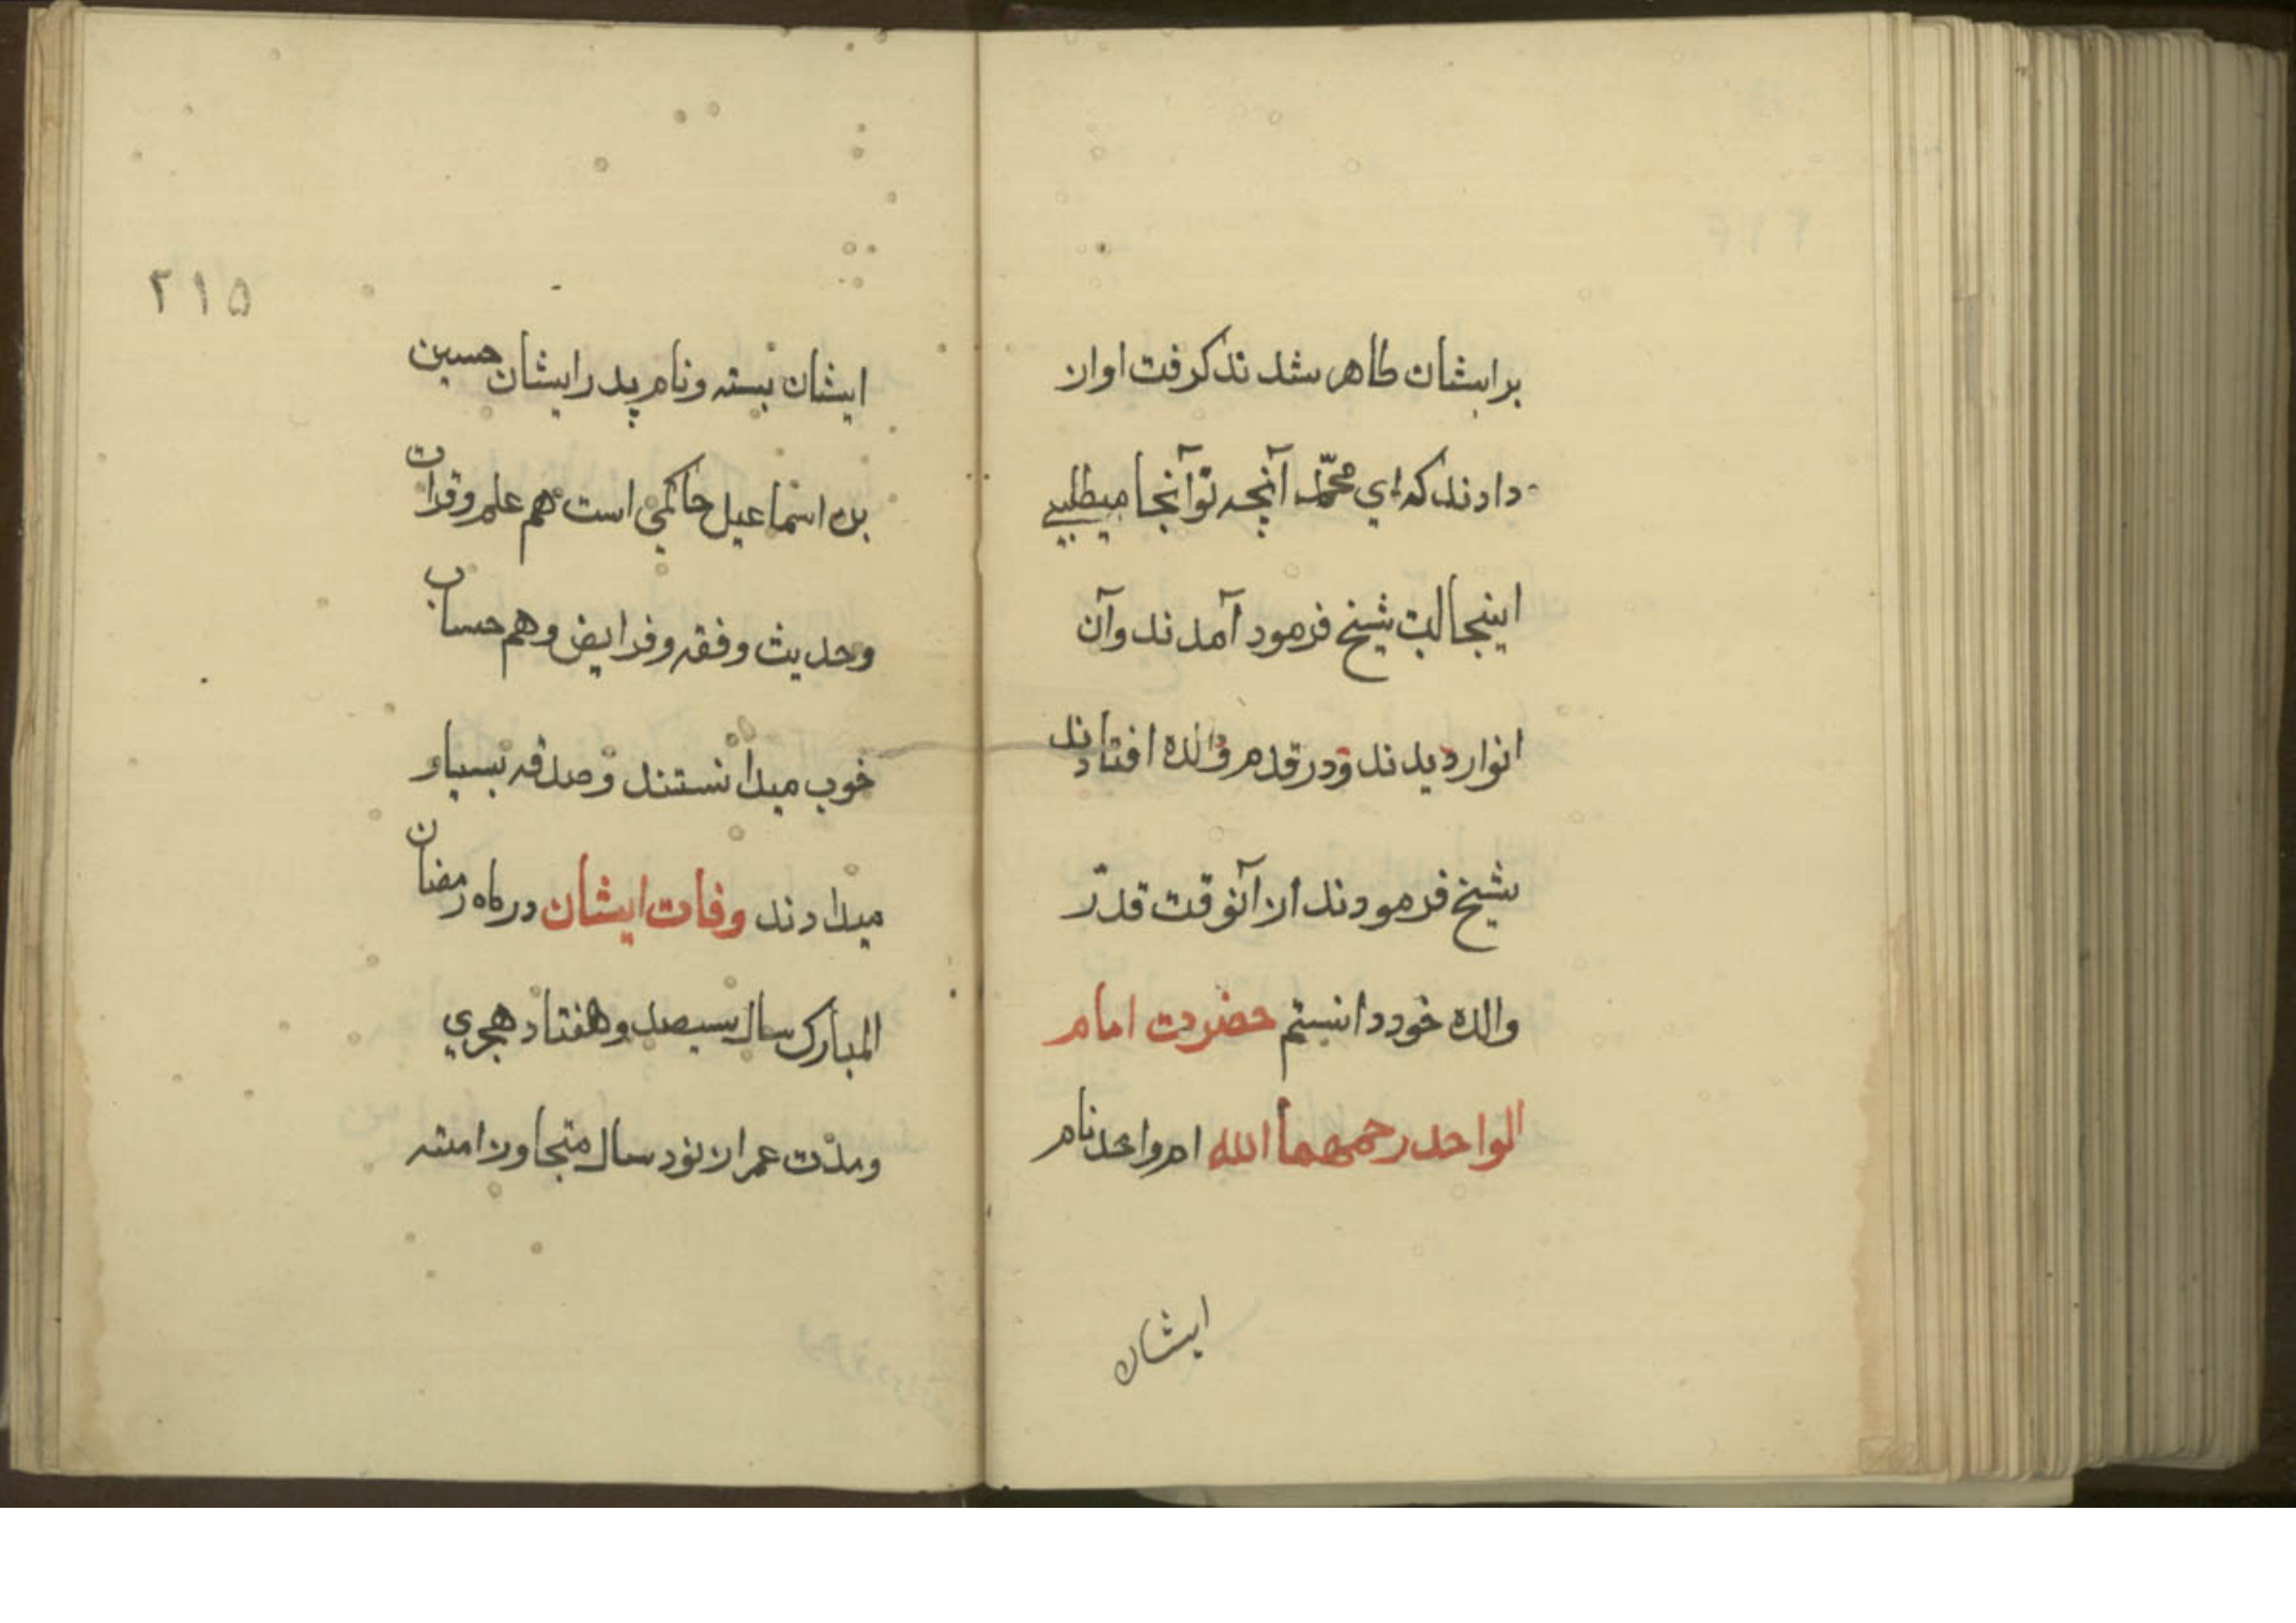 برایشان ظاهر شدند گرفت اواز
دادند که ای محمّد آنچه تو آنجا میطلبی
اینجا است شیخ فرمود آمدند وآن
انوار دیدند ودر قدم والده افتادند
شیخ فرمودند از آنوقت قدر
والده خود دانستم حضرت امام
الواحد رحمهما الله ام واحد نام
ایشان
۲۱۵
ایشان بسته ونام پدر ایشان حسین
بن اسماعیل حاکمی است هم علم وقران
وحدیث وفقه وفرایض وهم حساب
خوب میدانستند وصدقه بسیار
میدادند وفات ایشان در ماه رمضان
المبارک سال سیصد وهفتاد هجری
ومدت عمر از نود سال متجاوز امته